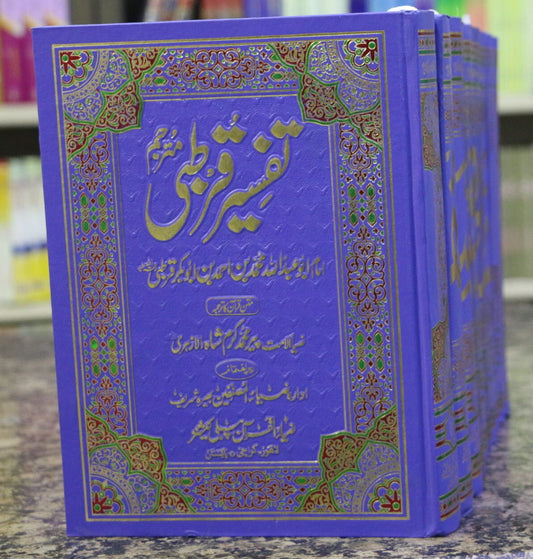 تفسیر قرطبی
مترجم
امام ابو عبداللہ محمد بن احمد بن ابو بکر قرطبی
متن قرآن کا ترجمہ
ضیاء الامت پیر محمد کرم شاہ الازہری
ادارہ ضیاء المصنفین بھیرہ شریف
ضیاء القرآن پبلی کیشنز
لاہور - کراچی - پاکستان